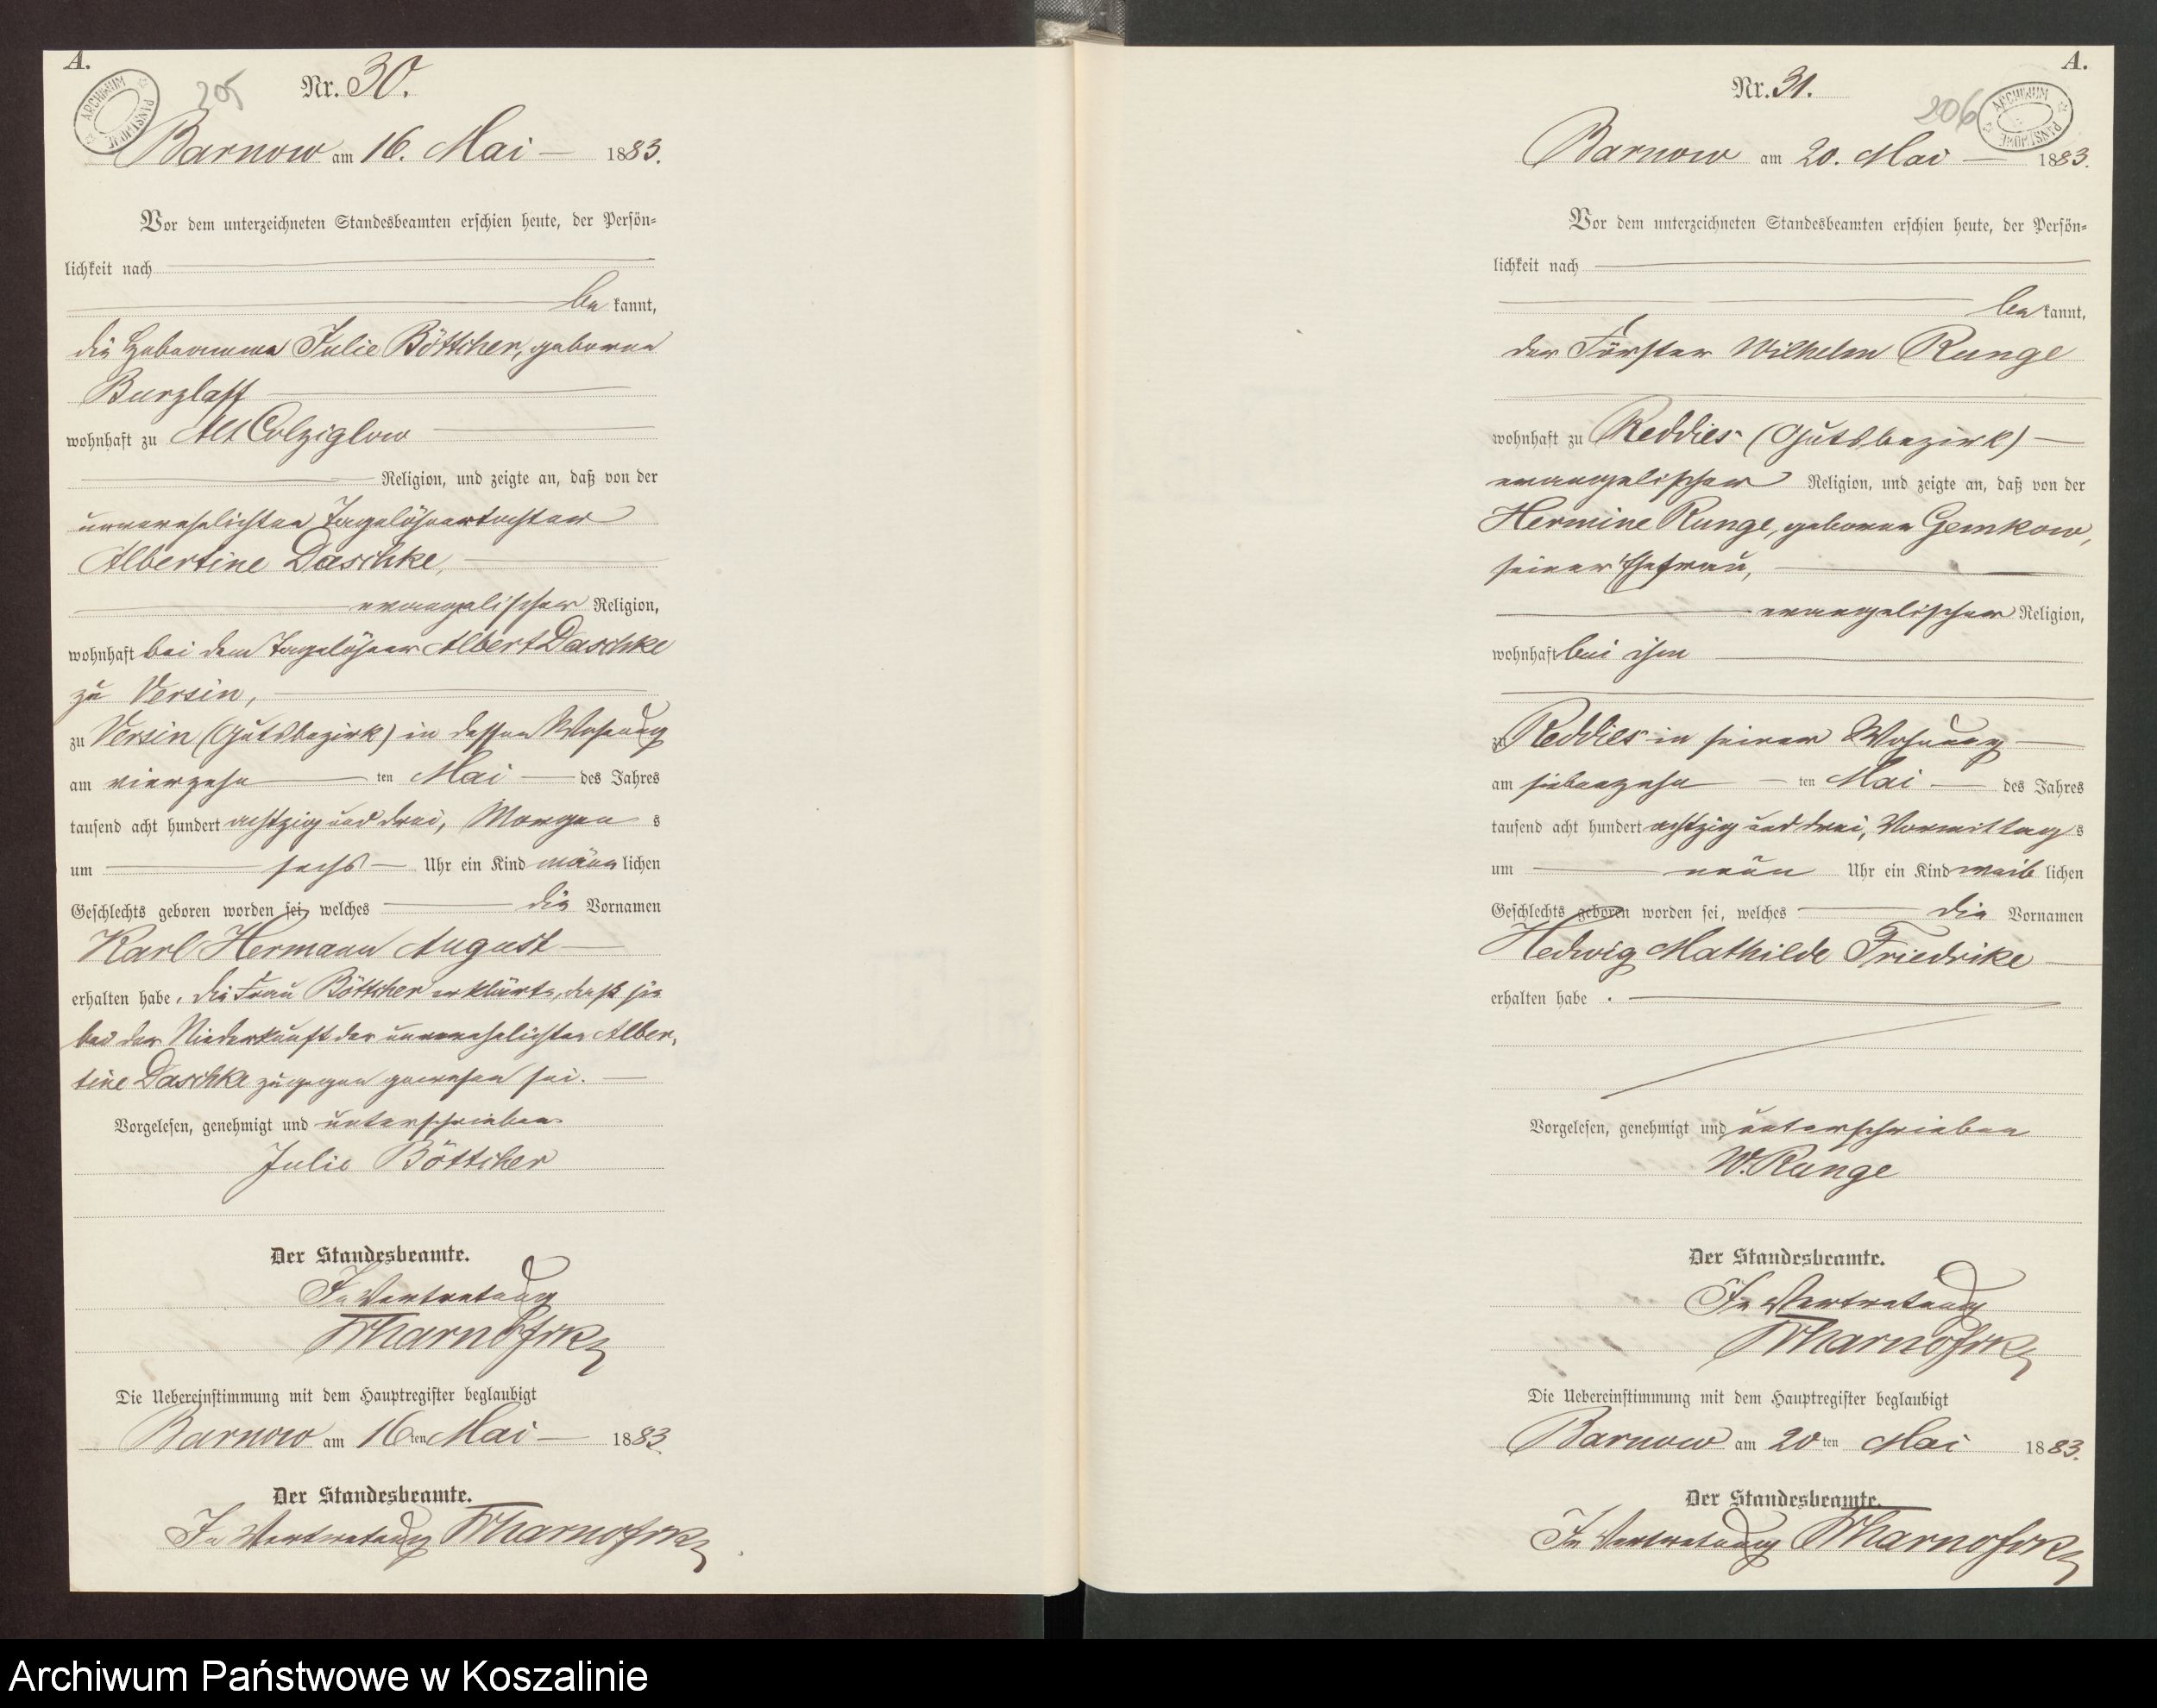 A.
ARCHIWUM PAŃSTWOWE
205
Nr. 30.
Barnow am 16. Mai 1883.
Vor dem unterzeichneten Standesbeamten erschien heute, der Persön=
lichkeit nach
be kannt,
die Hebeamme Julie Böttcher, geborne
Burzlaff
wohnhaft zu Alt Colziglow
Religion, und zeigte an, daß von der
unverehelichten Tagelöhnertochter
Albertine Daschke,
evangelischer Religion,
wohnhaft bei dem Tagelöhner Albert Daschke
zu Versin,
zu Versin (Gutsbezirk) in dessen Wohnung
am vierzehn ten Mai des Jahres
tausend acht hundert achtzig und drei, Morgen s
um sechs Uhr ein Kind männ lichen
Geschlechts geboren worden sei, welches die Vornamen
Karl Hermann August
erhalten habe. Die Frau Böttcher erklärte, daß sie
bei der Niederkunft der unverehelichten Alber=
tine Daschke zugegen gewesen sei.
Vorgelesen, genehmigt und unterschrieben
Julie Böttcher
Der Standesbeamte.
In Vertretung
Die Uebereinstimmung mit dem Hauptregister beglaubigt
Barnow am 16 ten Mai 1883.
Der Standesbeamte.
In Vertretung
A.
ARCHIWUM PAŃSTWOWE
206
Nr. 31.
Barnow am 20. Mai 1883.
Vor dem unterzeichneten Standesbeamten erschien heute, der Persön=
lichkeit nach
be kannt,
der Förster Wilhelm Runge
wohnhaft zu Reddies (Gutsbezirk)
evangelischer Religion, und zeigte an, daß von der
Hermine Runge, geborne Gemkow,
seiner Ehefrau,
evangelischer Religion,
wohnhaft bei ihm
zu Reddies in seiner Wohnung
am siebenzehn ten Mai des Jahres
tausend acht hundert achtzig und drei, Vormittag s
um neun Uhr ein Kind weib lichen
Geschlechts geboren worden sei, welches die Vornamen
Hedwig Mathilde Friedrike
erhalten habe.
Vorgelesen, genehmigt und unterschrieben
W. Runge
Der Standesbeamte.
In Vertretung
Die Uebereinstimmung mit dem Hauptregister beglaubigt
Barnow am 20 ten Mai 1883.
Der Standesbeamte.
In Vertretung
Archiwum Państwowe w Koszalinie